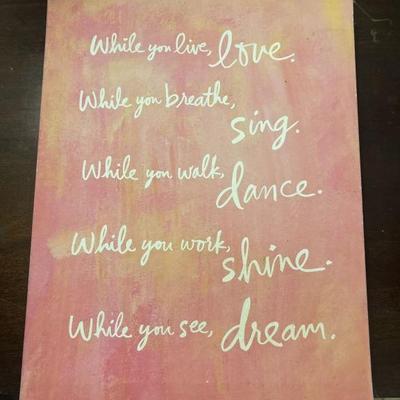 While you live, love.
While you breathe,
sing.
While you walk,
dance.
While you work,
shine.
While you see, dream.